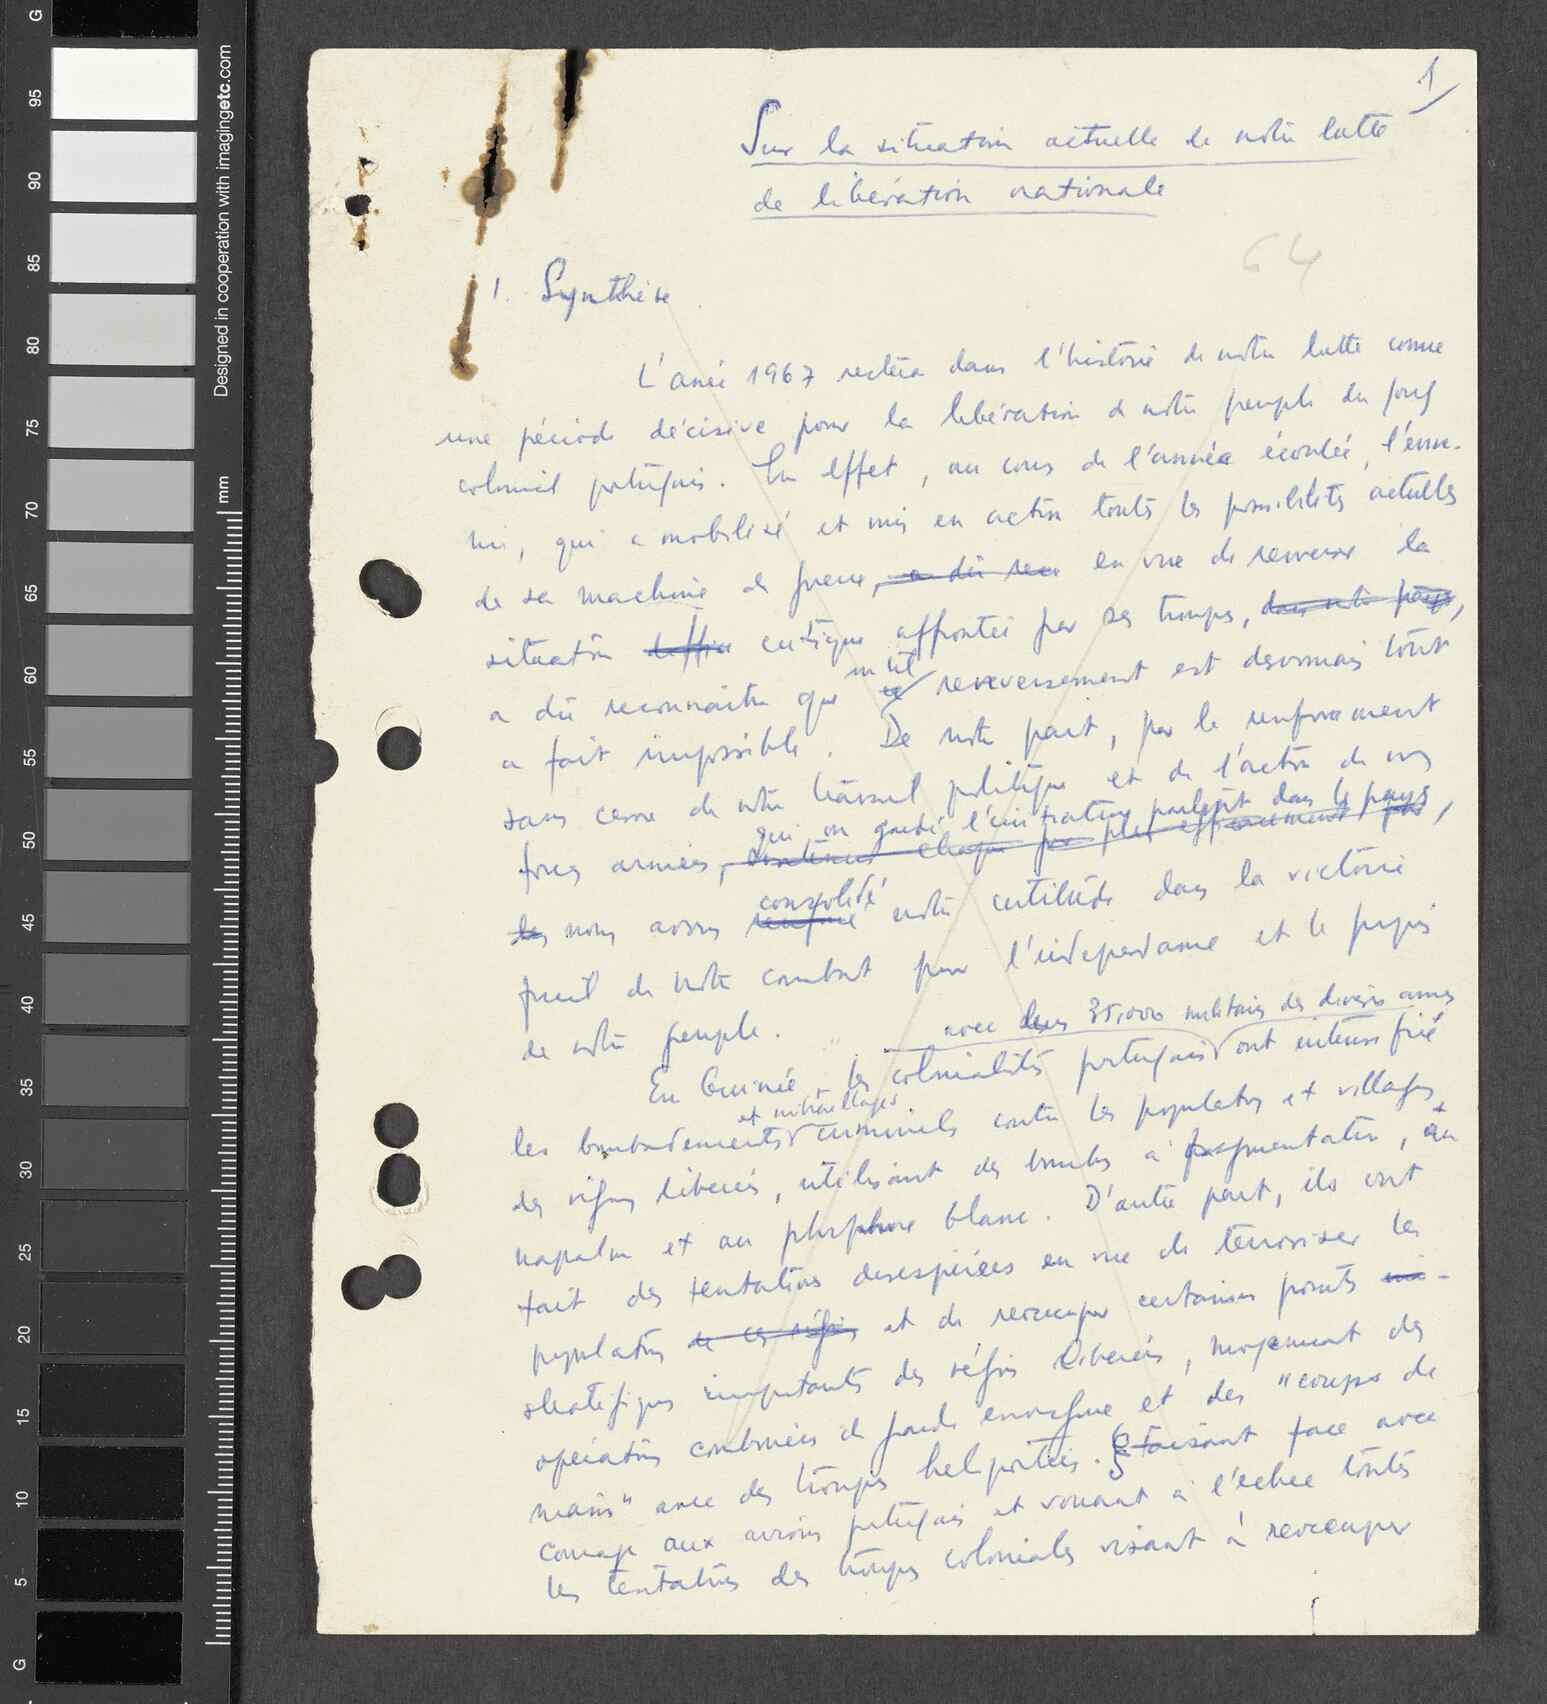 1
Sur la situation actuelle de notre lutte
de libération nationale
64
1. Synthèse
L'année 1967 restera dans l'histoire de notre lutte comme
une période décisive pour la libération de notre peuple du joug
colonial portugais. En effet, au cours de l'année écoulée, l'enne-
mi, qui a mobilisé et mis en action toutes les possibilités actuelles
de sa machine de guerre, a dû ren en vue de renverser la
situation critique affrontée par ses troupes, dans notre pays,
a dû reconnaître que un tel ce renversement est desormais tout
a fait impossible. De notre part, par le renforcement
sans cesse de notre travail politique et de l'action de nos
forces armées, qui on gardé l'initiative partout dans le pays,
les nous avons consolidé renforcé notre certitude dans la victoire
finale de notre combat pour l'independance et le progrès
de notre peuple.
avec leurs 35.000 militaires des diverses armes
En Guinée, les colonialistes portugais ont intensifié
et mitraillages
les bombardements criminels contre les populations et villages
des régions liberées, utilisant des bombes à fragmentation, au
napalm et au phosphore blanc. D'autre part, ils ont
fait des tentatives desespérées en vue de terroriser les
populations de ces régions et de reoccuper certains points
strategiques importants des régions liberées, moyennant des
opérations combinées de grande envergure et des "coups de
mains" avec des troupes heliportées. Faisant face avec
courage aux avions portugais et vouant à l'échec toutes
les tentatives des troupes coloniales visant à reoccuper
G
95
90
85
80
75
70
65
60
55
50
45
40
35
30
25
20
15
10
5
G
mm
Designed in cooperation with imagingetc.com